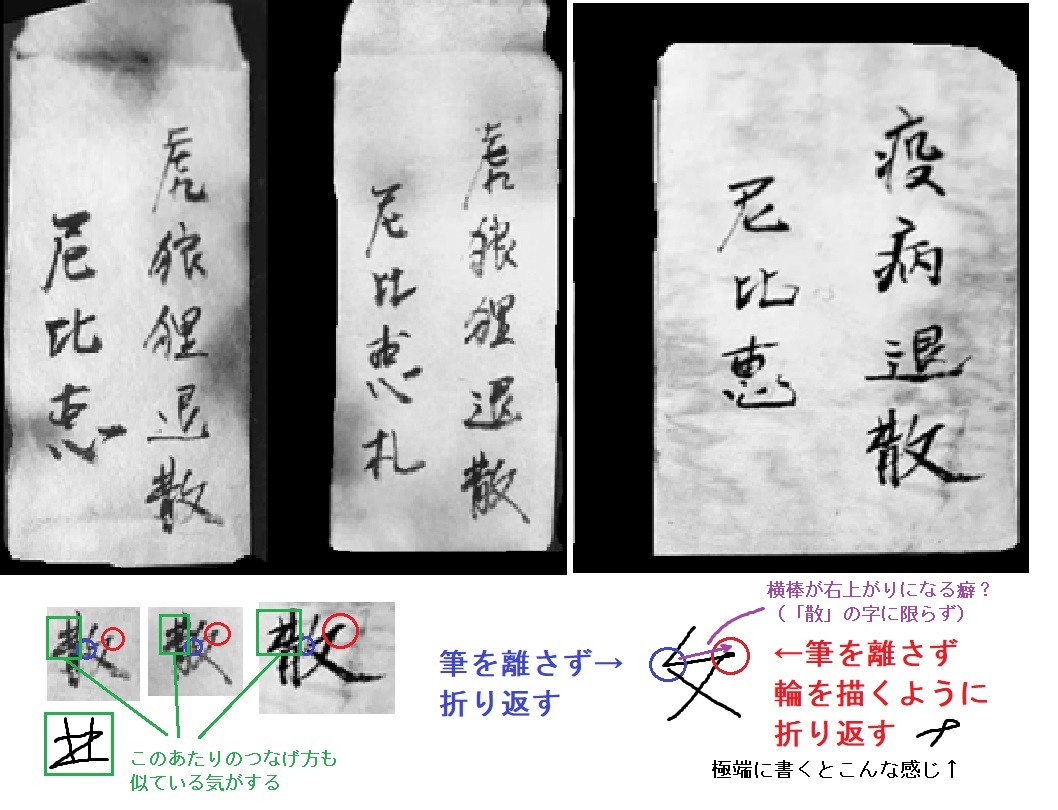 虎狼狸退散
尼比恵
虎狼狸退散
尼比恵札
疫病退散
尼比恵
散 散 散
このあたりのつなげ方も
似ている気がする
筆を離さず→
折り返す
横棒が右上がりになる癖？
（「散」の字に限らず）
←筆を離さず
輪を描くように
折り返す
極端に書くとこんな感じ↑